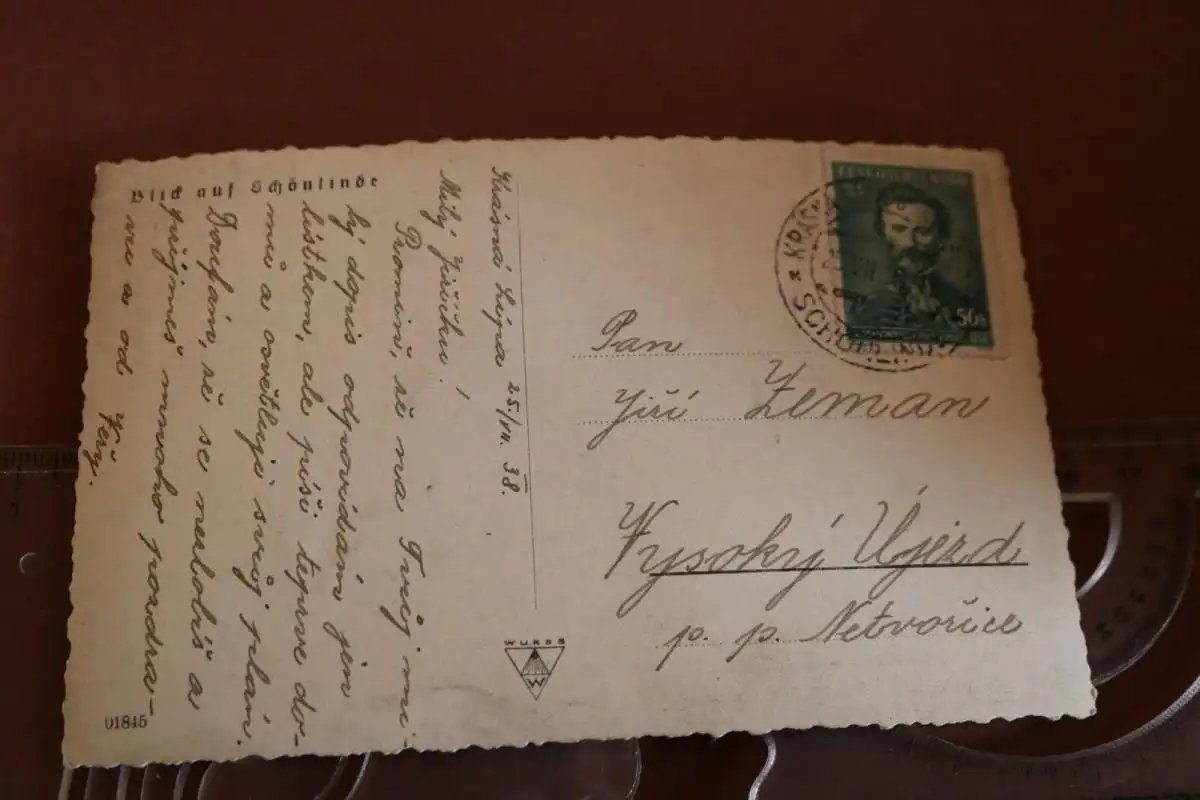 Blick auf Schönlinde
Krásná Lípa 25./VII. 38.
Milý Jiříčku!
Promiň, že na Tvůj mi-
lý dopis odpovídám jen
lístkem, ale píši teprve do-
mů a osvětluji svůj plán.
Doufám, že se nezlobíš a
přijmeš mnoho pozdra-
vů a od
Jery.
01845
WUKDS
W
ČESKOSLOVENSKO
50h
KRÁSNÁ
SCHÖNLINDE
Pan
Jiří Zeman
Vysoký Újezd
p. p. Netvořice